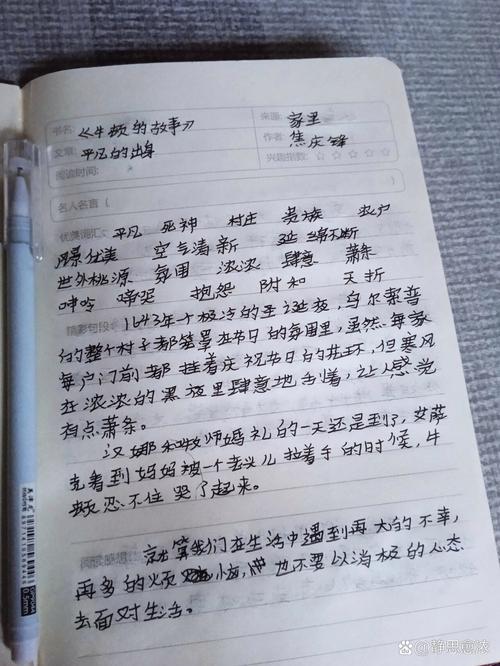 书名: 《牛顿的故事》 来源: 家里
文章: 平凡的出身 作者: 焦庆锋
阅读时间: 兴趣指数: ☆ ☆ ☆ ☆ ☆
名人名言 ( )
优美词汇: 平凡 死神 村庄 贵族 农户
风景优美 空气清新 延绵不断
世外桃源 氛围 浓浓 肆意 萧条
呻吟 啼哭 抱怨 附和 夭折
精彩句段: 1643年一个极冷的圣诞夜,乌尔索普
的整个村子都笼罩在节日的氛围里,虽然每家
每户门前都挂着庆祝节日的花环,但寒风
在浓浓的黑夜里肆意地刮着,让人感觉
有点萧条。
汉娜和牧师婚礼的一天还是到了,艾萨
克看到妈妈被一个老头儿拉着手的时候,牛
顿忍不住哭了起来。
阅读感想: 就算我们在生活中遇到再大的不幸,
再多的烦恼,也不要以消极的心态
去面对生活。
0.5mm
静思愈浓